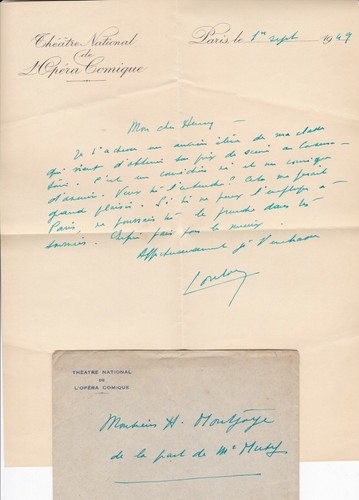 Théâtre National
de
L'Opéra Comique
Paris, le 1er sept 1949
Mon cher Henry —
Je t'adresse un ancien élève de ma classe
qui vient d'obtenir son prix de scène au Conserva-
toire. C'est un comédien né et un comique
d'avenir. Veux-tu l'entendre? Cela me ferait
grand plaisir. Si tu ne peux l'employer à
Paris, ne pourrais-tu le prendre dans tes
tournées. Enfin fais pour le mieux.
Affectueusement je t'embrasse
THÉATRE NATIONAL
DE
L'OPÉRA COMIQUE
Monsieur H. Montjoye
de la part de Mr